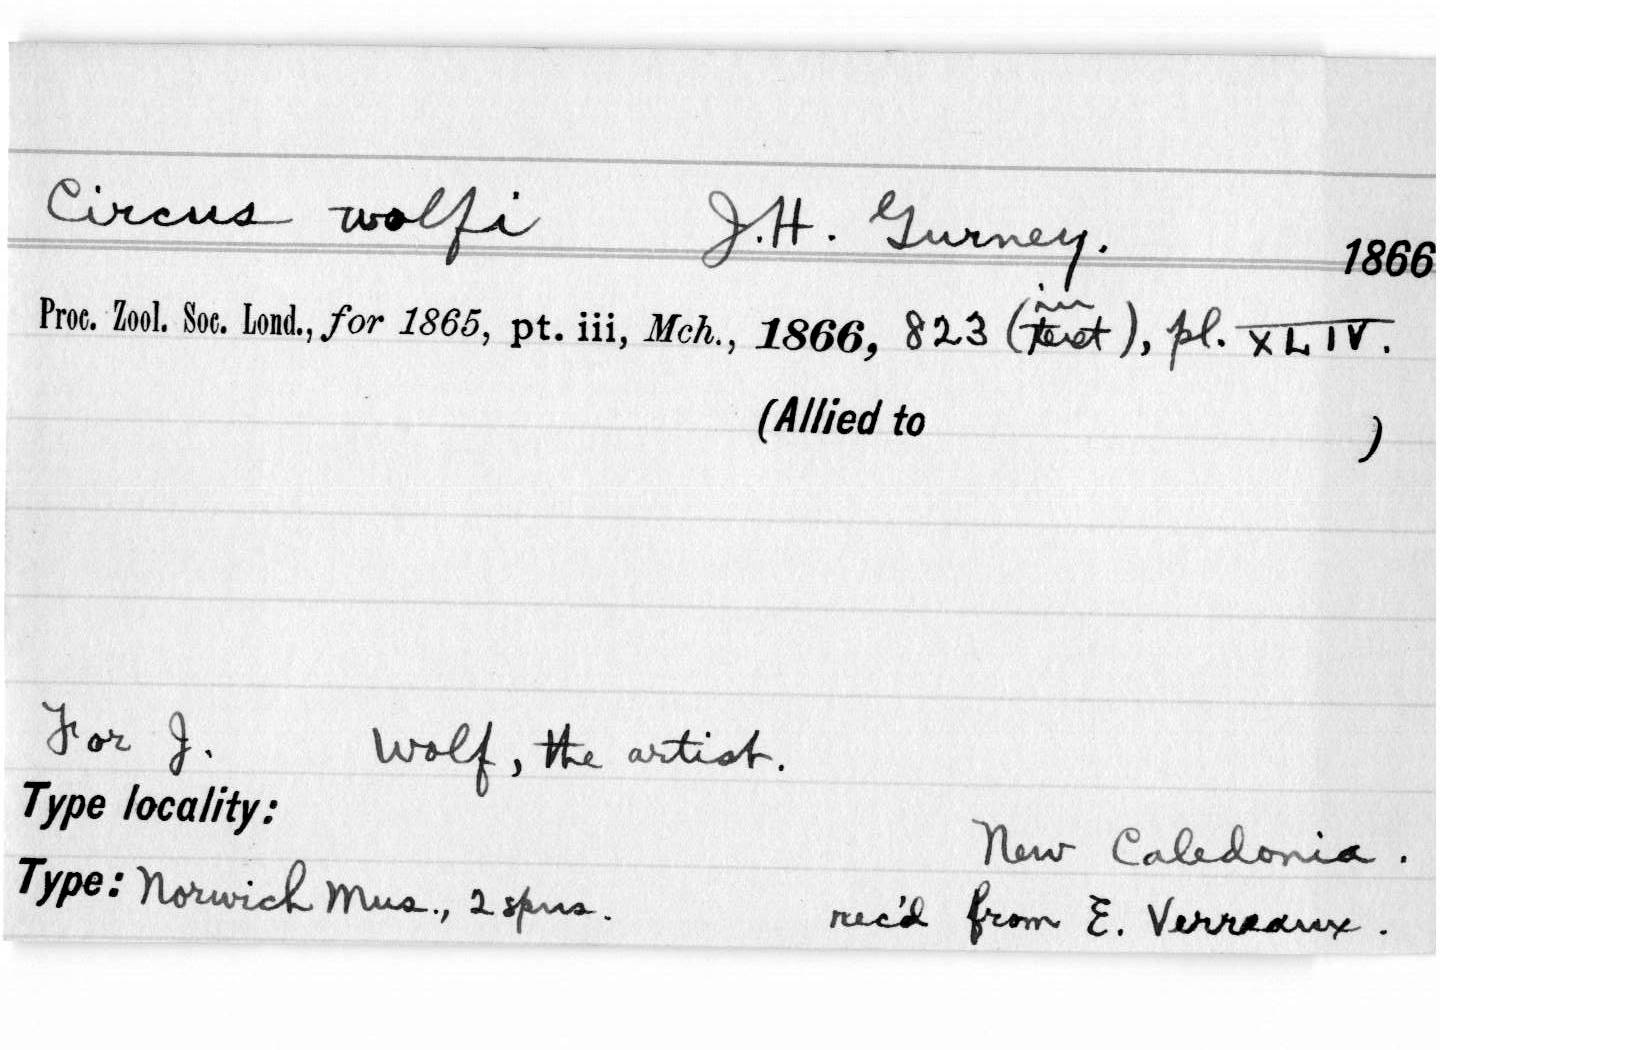 Circus wolfi J.H. Gurney. 1866
Proc. Zool. Soc. Lond., for 1865, pt. iii, Mch., 1866, 823 (in text), pl. XLIV.
(Allied to )
For J. Wolf, the artist.
Type locality:
New Caledonia.
Type: Norwich Mus., 2 spms. rec'd from E. Verreaux.